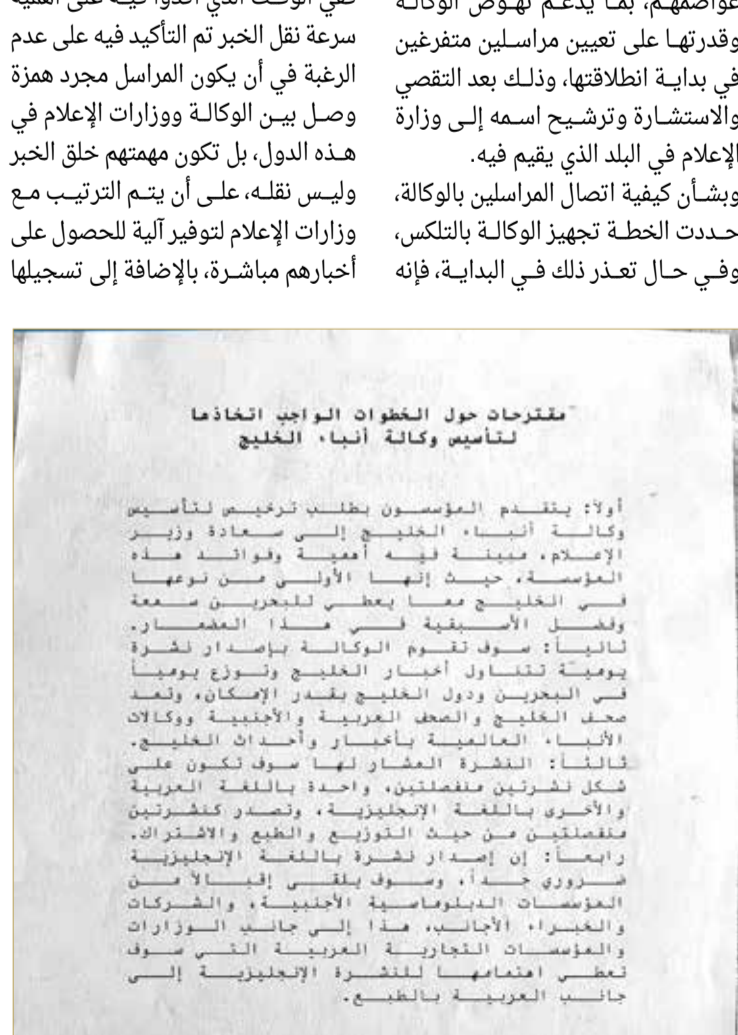 عواصمهم، بما يدعم نهوض الوكالة
وقدرتها على تعيين مراسلين متفرغين
في بداية انطلاقتها، وذلك بعد التقصي
والاستشارة وترشيح اسمه إلى وزارة
الإعلام في البلد الذي يقيم فيه.
وبشأن كيفية اتصال المراسلين بالوكالة،
حددت الخطة تجهيز الوكالة بالتلكس،
وفي حال تعذر ذلك في البداية، فإنه
ففي الوقت الذي أكدوا فيه على أهمية
سرعة نقل الخبر تم التأكيد فيه على عدم
الرغبة في أن يكون المراسل مجرد همزة
وصل بين الوكالة ووزارات الإعلام في
هذه الدول، بل تكون مهمتهم خلق الخبر
وليس نقله، على أن يتم الترتيب مع
وزارات الإعلام لتوفير آلية للحصول على
أخبارهم مباشرة، بالإضافة إلى تسجيلها
مقترحات حول الخطوات الواجب اتخاذها
لتأسيس وكالة أنباء الخليج
أولاً: يتقدم المؤسسون بطلب ترخيص لتأسيس
وكالة أنباء الخليج إلى سعادة وزير
الإعلام، مبينة فيه أهمية وفوائد هذه
المؤسسة، حيث إنها الأولى من نوعها
في الخليج مما يعطي للبحرين سمعة
وفضل الأسبقية في هذا المضمار.
ثانياً: سوف تقوم الوكالة بإصدار نشرة
يومية تتناول أخبار الخليج وتوزع يومياً
في البحرين ودول الخليج بقدر الإمكان، وتمد
صحف الخليج والصحف العربية والأجنبية ووكالات
الأنباء العالمية بأخبار وأحداث الخليج.
ثالثاً: النشرة المشار لها سوف تكون على
شكل نشرتين منفصلتين، واحدة باللغة العربية
والأخرى باللغة الإنجليزية، وتصدر كنشرتين
منفصلتين من حيث التوزيع والطبع والاشتراك.
رابعاً: إن إصدار نشرة باللغة الإنجليزية
ضروري جداً، وسوف يلقى إقبالاً من
المؤسسات الدبلوماسية الأجنبية، والشركات
والخبراء الأجانب، هذا إلى جانب الوزارات
والمؤسسات التجارية العربية التي سوف
تعطي اهتمامها للنشرة الإنجليزية إلى
جانب العربية بالطبع.